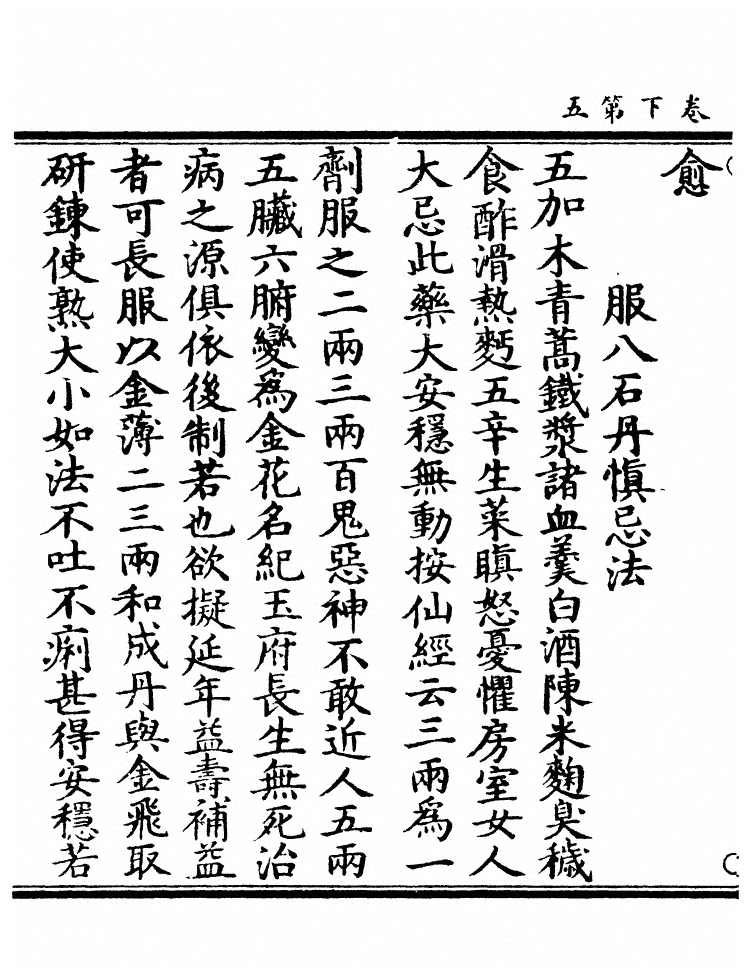 卷下第五
愈
服八石丹慎忌法
五加木青蒿鐵漿諸血羹白酒陳米麴臭穢
食酢滑熱麫五辛生菜瞋怒憂懼房室女人
大忌此藥大安穩無動按仙經云三兩為一
劑服之二兩三兩百鬼惡神不敢近人五兩
五臟六腑變為金花名紀玉府長生無死治
病之源俱依後制若也欲擬延年益壽補益
者可長服以金薄二三兩和成丹與金飛取
研鍊使熟大小如法不吐不痢甚得安穩若